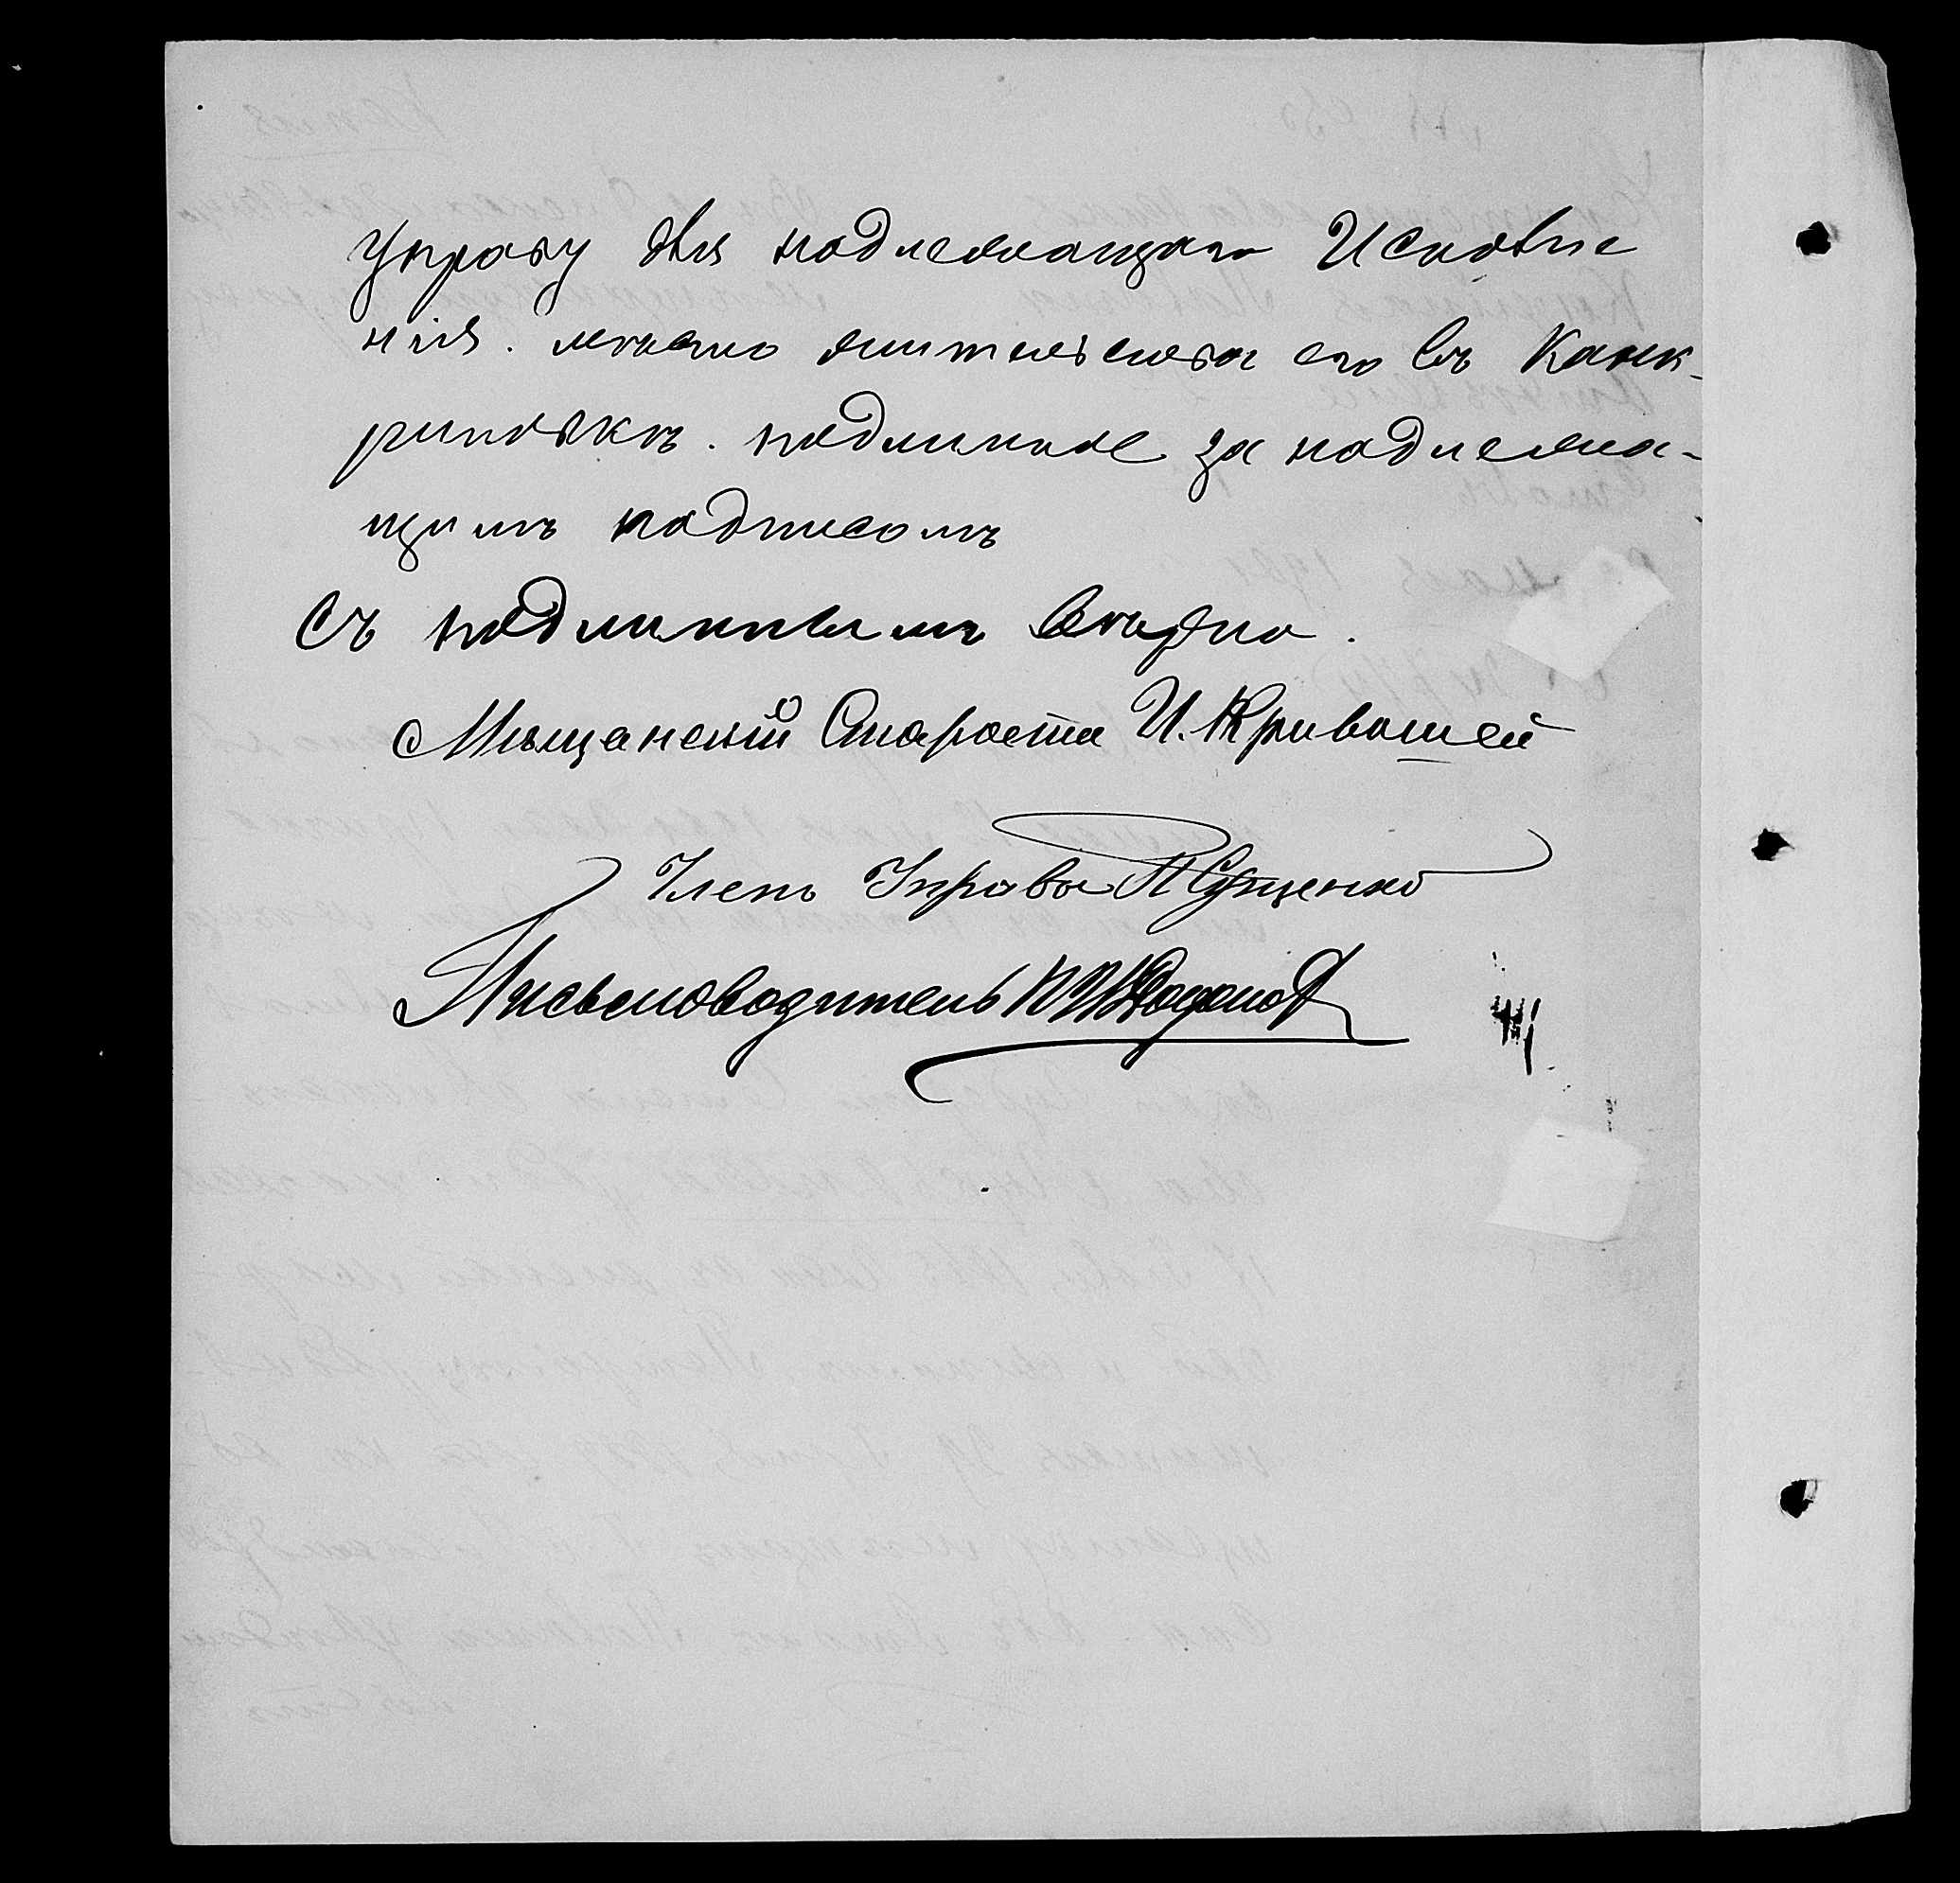 Управу для надлежащаго Исполне
нія. место жительства его въ Канк-
риновкѣ. подлинное за надлежа-
щимъ подписомъ
Съ подлиннымъ вѣрно.
Мѣщанскій Староста И. Кривошей
Членъ Управы П Сущенко
Письмоводитель